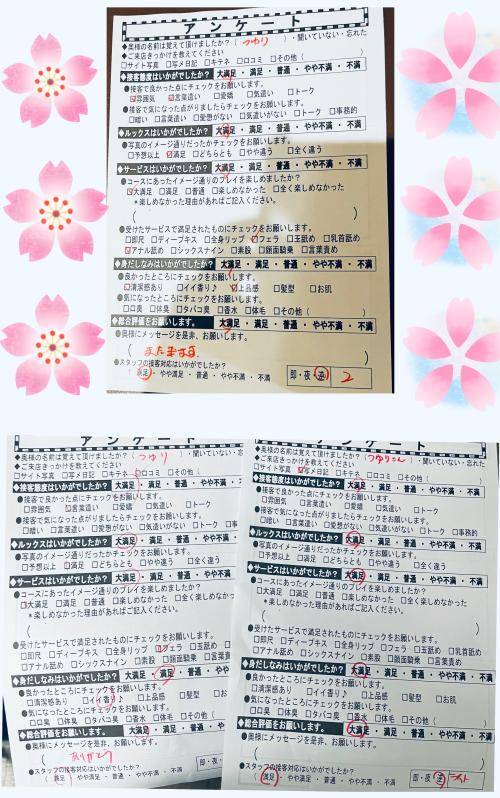 アンケート
◆奥様の名前は覚えて頂けましたか？（ つゆり ）・聞いていない・忘れた
◆ご来店きっかけを教えてください
□サイト写真 □写メ日記 □キテネ □口コミ □その他（
◆接客態度はいかがでしたか？ 大満足・満足・普通・やや不満・不満
●接客で良かった点にチェックをお願いします。
□雰囲気 □言葉遣い □愛嬌 □気遣い □トーク
●接客で気になった点がありましたらチェックをお願いします。
□暗い □言葉遣い □愛想がない □気遣いがない □トーク □事務的
◆ルックスはいかがでしたか？ 大満足・満足・普通・やや不満・不満
●写真のイメージ通りだったかチェックをお願いします。
□予想以上 □満足 □どちらとも □やや違う □全く違う
◆サービスはいかがでしたか？ 大満足・満足・普通・やや不満・不満
●コースにあったイメージ通りのプレイを楽しめましたか？
□大満足 □満足 □普通 □楽しめなかった □全く楽しめなかった
＊楽しめなかった理由があればご記入ください。
（ ）
●受けたサービスで満足されたものにチェックをお願いします。
□即尺 □ディープキス □全身リップ □フェラ □玉舐め □乳首舐め
□アナル舐め □シックスナイン □素股 □顔面騎乗 □言葉責め
◆身だしなみはいかがでしたか？ 大満足・満足・普通・やや不満・不満
●良かったところにチェックをお願いします。
□清潔感あり □イイ香り♪ □上品感 □髪型 □お肌
●気になったところにチェックをお願いします。
□口臭 □体臭 □タバコ臭 □香水 □体毛 □その他（ ）
◆総合評価をお願いします。 大満足・満足・普通・やや不満・不満
●奥様にメッセージを是非、お願いします。
（ またきます。 ）
●スタッフの接客対応はいかがでしたか？
満足・やや満足・普通・やや不満・不満 即・夜・逆 2
アンケート
◆奥様の名前は覚えて頂けましたか？（ つゆり ）・聞いていない
◆ご来店きっかけを教えてください
□サイト写真 □写メ日記 □キテネ □口コミ □その他（
◆接客態度はいかがでしたか？ 大満足・満足・普通・やや不満
●接客で良かった点にチェックをお願いします。
□雰囲気 □言葉遣い □愛嬌 □気遣い □トーク
●接客で気になった点がありましたらチェックをお願いします。
□暗い □言葉遣い □愛想がない □気遣いがない □トーク □事
◆ルックスはいかがでしたか？ 大満足・満足・普通・やや不満
●写真のイメージ通りだったかチェックをお願いします。
□予想以上 □満足 □どちらとも □やや違う □全く違う
◆サービスはいかがでしたか？ 大満足・満足・普通・やや不満
●コースにあったイメージ通りのプレイを楽しめましたか？
□大満足 □満足 □普通 □楽しめなかった □全く楽しめなかった
＊楽しめなかった理由があればご記入ください。
（
●受けたサービスで満足されたものにチェックをお願いします。
□即尺 □ディープキス □全身リップ □フェラ □玉舐め □乳
□アナル舐め □シックスナイン □素股 □顔面騎乗 □言葉責
◆身だしなみはいかがでしたか？ 大満足・満足・普通・やや不満
●良かったところにチェックをお願いします。
□清潔感あり □イイ香り♪ □上品感 □髪型 □お
●気になったところにチェックをお願いします。
□口臭 □体臭 □タバコ臭 □香水 □体毛 □その他（
◆総合評価をお願いします。 大満足・満足・普通・やや不満
●奥様にメッセージを是非、お願いします。
（ ありがとう
●スタッフの接客対応はいかがでしたか？
満足・やや満足・普通・やや不満・不満 即・夜
アンケート
◆奥様の名前は覚えて頂けましたか？（ つゆりさん ）・聞いていない・忘れた
◆ご来店きっかけを教えてください
□サイト写真 □写メ日記 □キテネ □口コミ □その他（ ）
◆接客態度はいかがでしたか？ 大満足・満足・普通・やや不満・不満
●接客で良かった点にチェックをお願いします。
□雰囲気 □言葉遣い □愛嬌 □気遣い □トーク
●接客で気になった点がありましたらチェックをお願いします。
□暗い □言葉遣い □愛想がない □気遣いがない □トーク □事務的
◆ルックスはいかがでしたか？ 大満足・満足・普通・やや不満・不満
●写真のイメージ通りだったかチェックをお願いします。
□予想以上 □満足 □どちらとも □やや違う □全く違う
◆サービスはいかがでしたか？ 大満足・満足・普通・やや不満・不満
●コースにあったイメージ通りのプレイを楽しめましたか？
□大満足 □満足 □普通 □楽しめなかった □全く楽しめなかった
＊楽しめなかった理由があればご記入ください。
（ ）
●受けたサービスで満足されたものにチェックをお願いします。
□即尺 □ディープキス □全身リップ □フェラ □玉舐め □乳首舐め
□アナル舐め □シックスナイン □素股 □顔面騎乗 □言葉責め
◆身だしなみはいかがでしたか？ 大満足・満足・普通・やや不満・不満
●良かったところにチェックをお願いします。
□清潔感あり □イイ香り♪ □上品感 □髪型 □お肌
●気になったところにチェックをお願いします。
□口臭 □体臭 □タバコ臭 □香水 □体毛 □その他（ ）
◆総合評価をお願いします。 大満足・満足・普通・やや不満・不満
●奥様にメッセージを是非、お願いします。
（ ）
●スタッフの接客対応はいかがでしたか？
満足・やや満足・普通・やや不満・不満 即・夜・逆